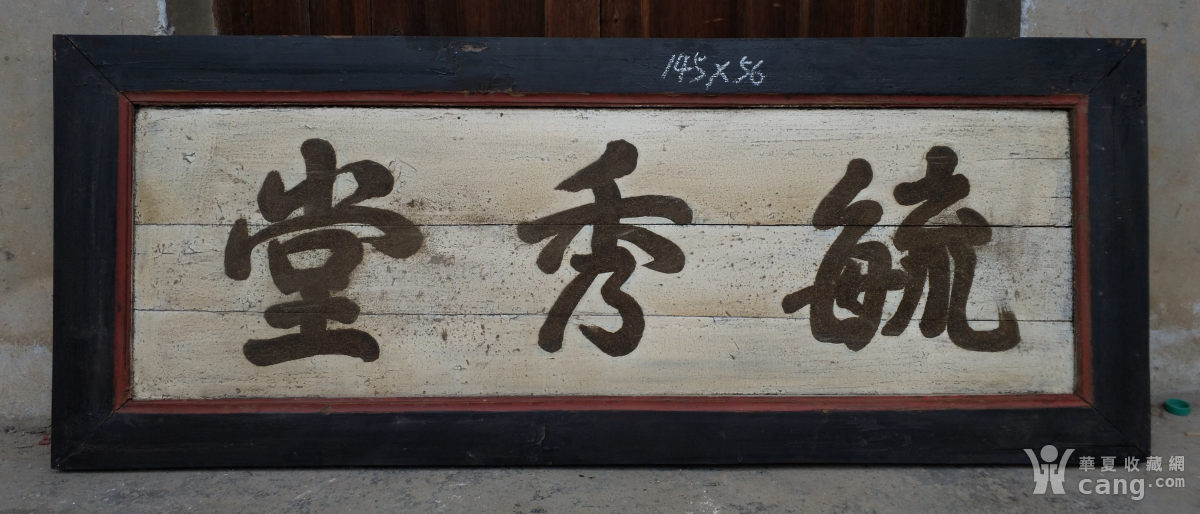 145×56
毓秀堂
華夏收藏網
cang.com